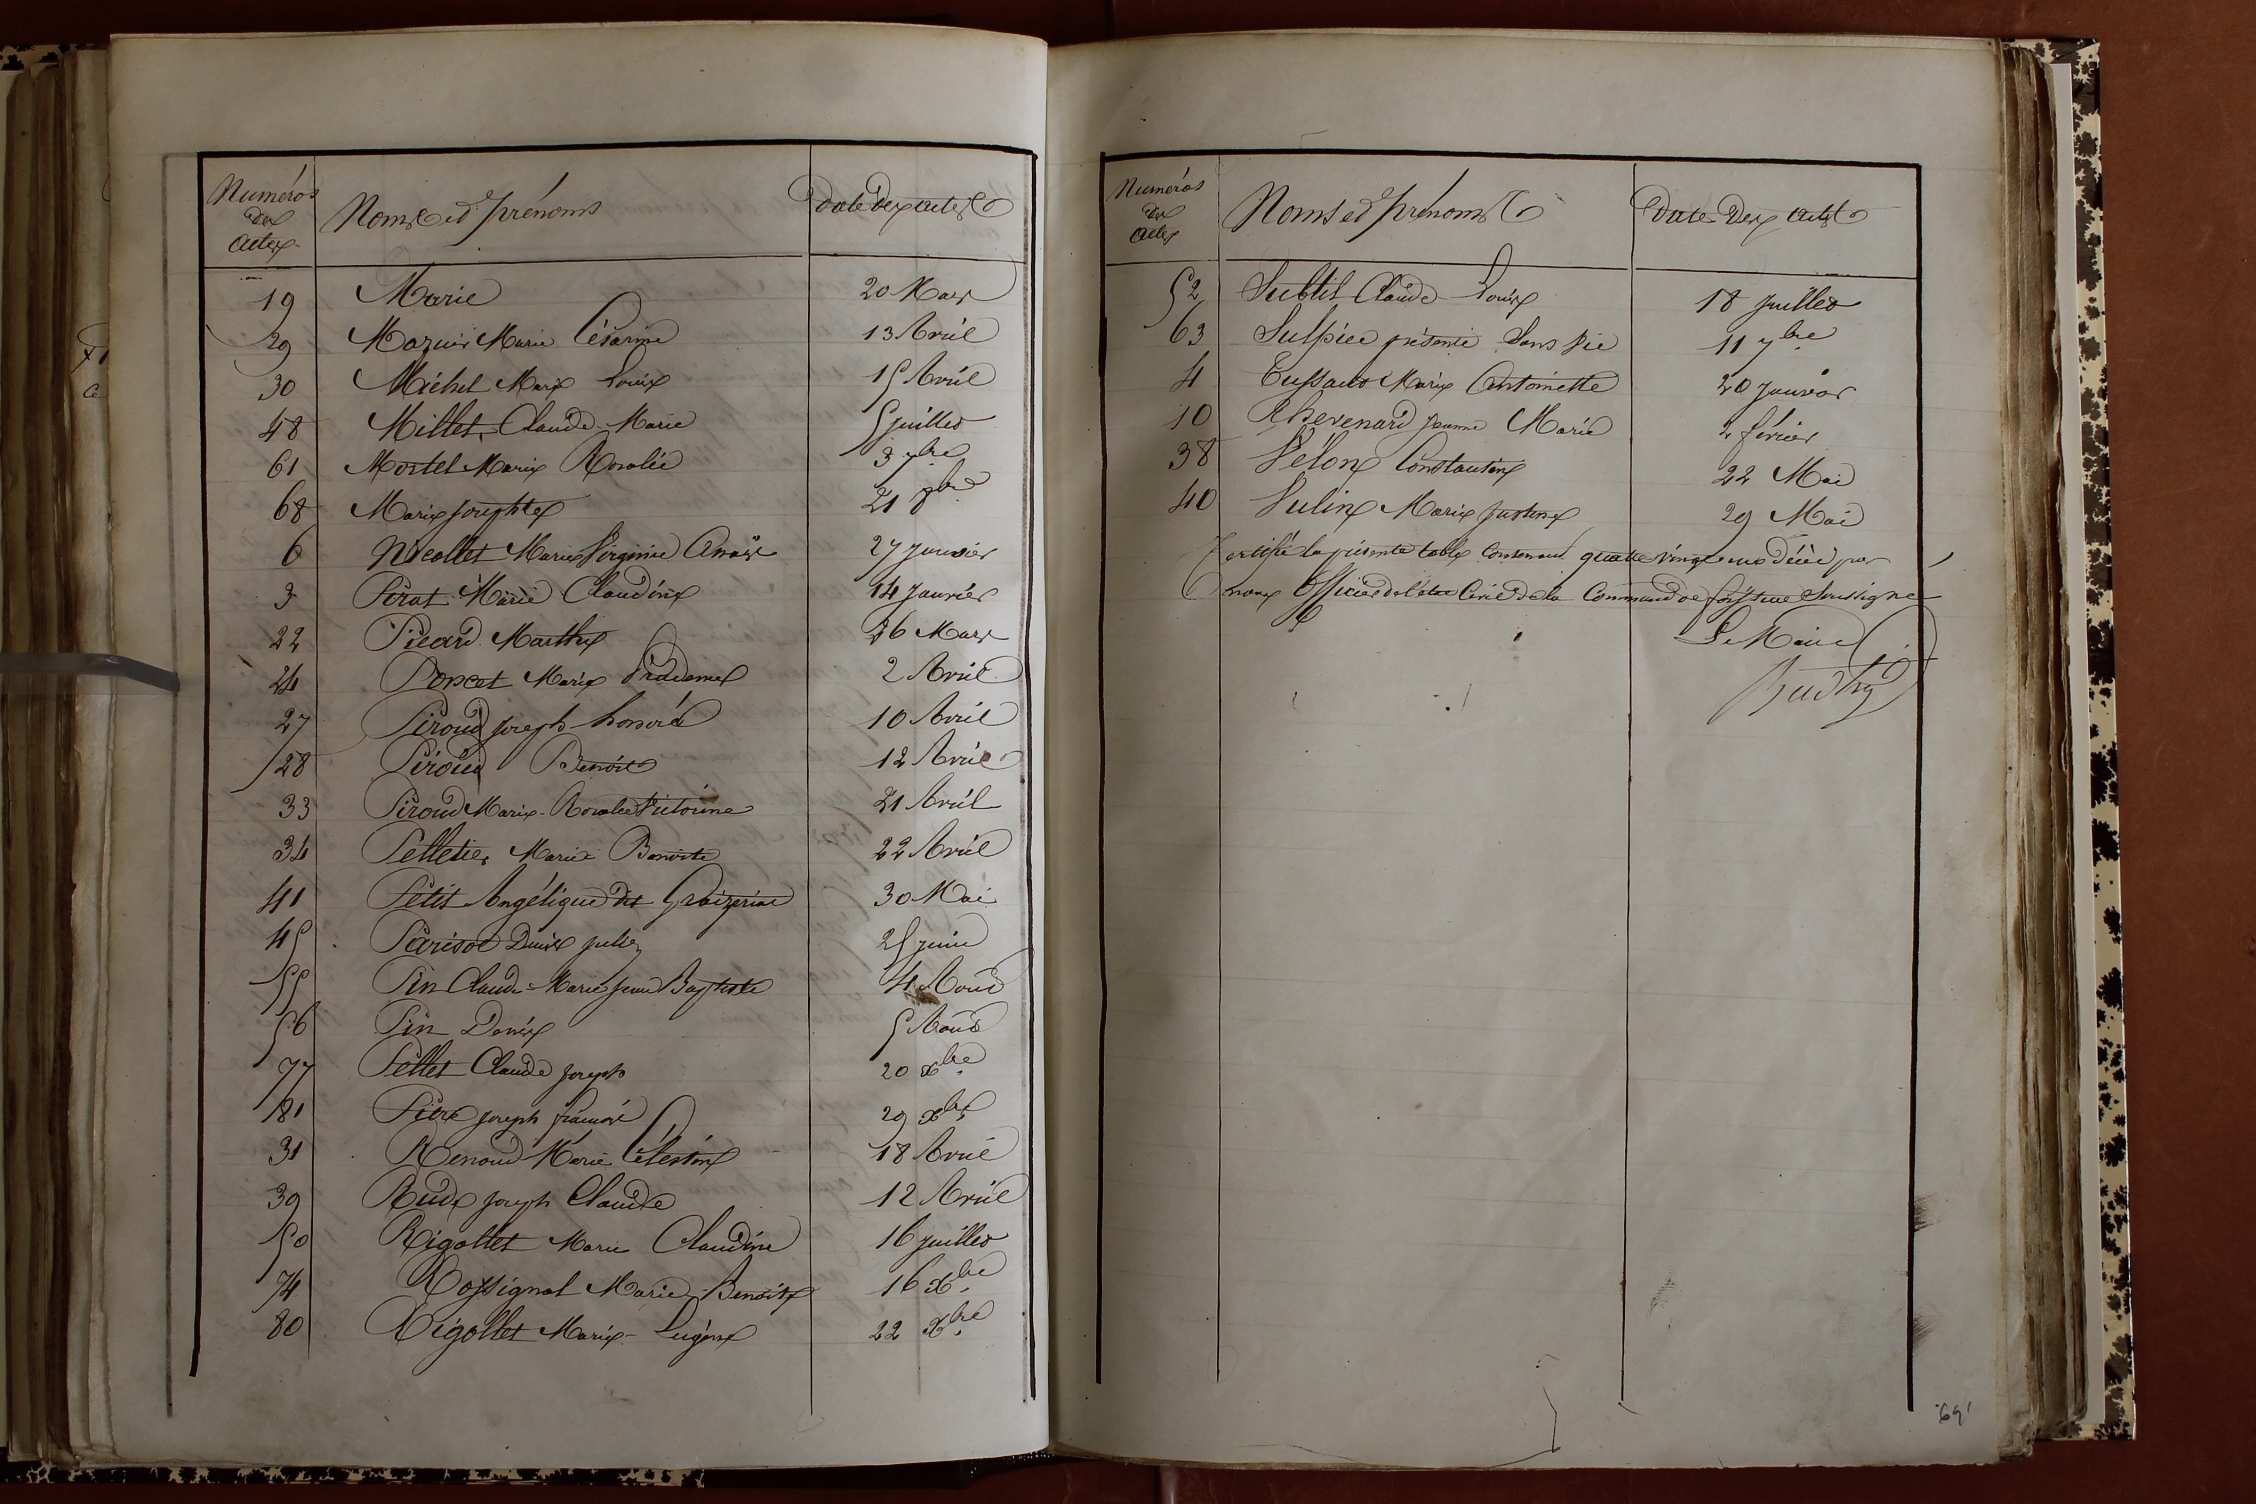 Numéros des actes Noms et prénoms Date des actes
19 Marie 20 Mars
29 Mazuir Marie Césarine 13 Avril
30 Michel Marie Louise 15 Avril
48 Millet Claude Marie 5 juillet
61 Mortel Marie Rosalie 3 7bre
68 Marie Josephte 21 8bre
6 Nicollet Marie Virginie Anaïse 27 janvier
3 Pirat Marie Claudine 14 janvier
22 Picard Marthe 26 Mars
24 Poncet Marie 2 Avril
27 Piroud joseph honoré 10 Avril
28 Piroud Benoit 12 Avril
33 Piroud Marie Rosalie Victorine 21 Avril
34 Pelletier Marie Benoite 22 Avril
41 Petit Angélique dit 30 Mai
45 Parisot Denise julie 25 juin
55 Pin Claude Marie jean Baptiste 4 Août
56 Pin Denise 5 Août
77 Pellet Claude joseph 20 xbre
81 joseph françois 29 xbre
31 Renoud Marie Célestine 18 Avril
39 Rude joseph Claude 12 Avril
50 Rigollet Marie Claudine 16 juillet
74 Rossignol Marie Benoite 16 xbre
80 Rigollet Marie Eugénie 22 xbre
Numéros des actes Noms et prénoms Date des actes
52 Subtil Claude Louise 18 juillet
63 Sulpice présenté sans vie 11 7bre
4 Tussaut Marie Antoinette 20 janvier
10 Thevenard jeanne Marie 2 février
38 Vélon Constantin 22 Mai
40 Vulin Marie justine 29 Mai
Certifié la présente table contenant quatre vingt un décès par
nous Officier de l'état Civil de la Commune de soussigné
Le Maire
69